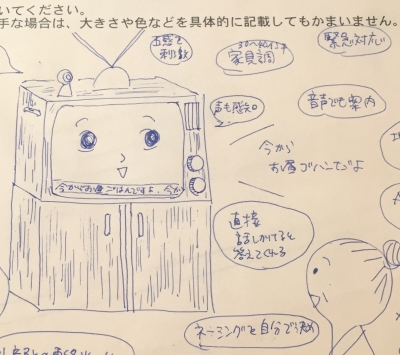 いてください。
手な場合は、大きさや色などを具体的に記載してもかまいません。
お惑で
刺激
家具調
緊急対応
声も感知
音声でも案内
今から
お昼ゴハンですよ
今からお昼ごはんですよ、今か
直接
話しかけると
答えてくれる
ネーミングを自分で決め